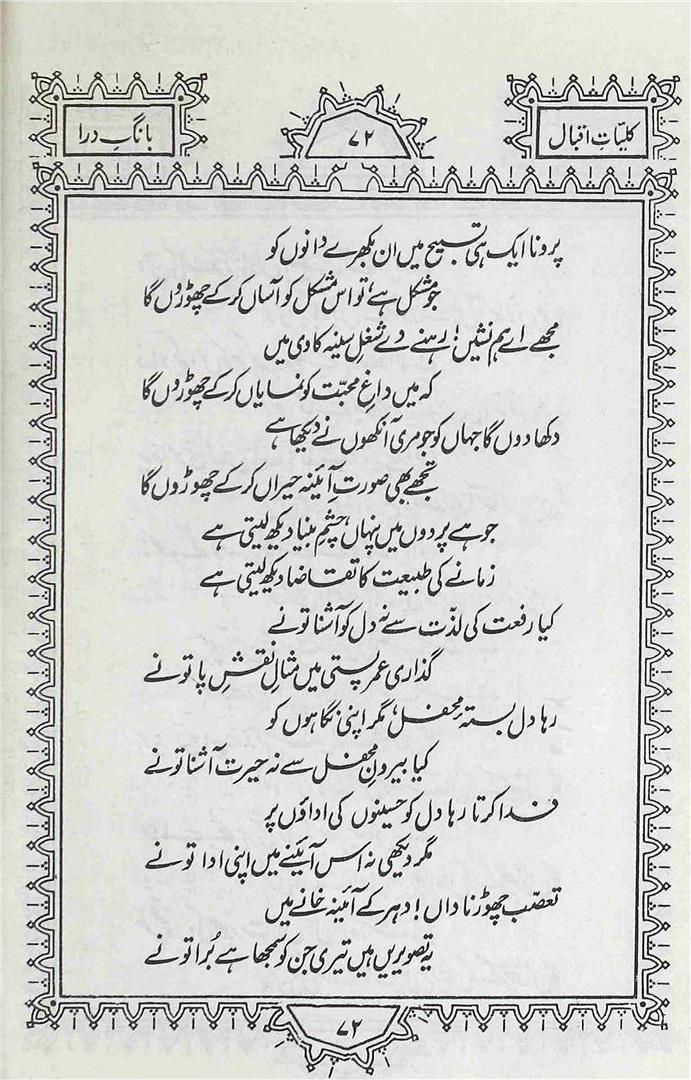 کلیّاتِ اقبال
۷۲
بانگِ درا
پرونا ایک ہی تسبیح میں ان بکھرے دانوں کو
جو مشکل ہے، تو اس مشکل کو آساں کر کے چھوڑوں گا
مجھے اے ہم نشیں! رہنے دے شغلِ سینہ کاوی میں
کہ میں داغِ محبّت کو نمایاں کر کے چھوڑوں گا
دکھا دوں گا جہاں کو جو مری آنکھوں نے دیکھا ہے
تجھے بھی صورتِ آئینہ حیراں کر کے چھوڑوں گا
جو ہے پردوں میں پنہاں، چشمِ بینا دیکھ لیتی ہے
زمانے کی طبیعت کا تقاضا دیکھ لیتی ہے
کیا رفعت کی لذّت سے نہ دل کو آشنا تو نے
گذاری عمر پستی میں مثالِ نقشِ پا تو نے
رہا دل بستۂ محفل، مگر اپنی نگاہوں کو
کیا بیرونِ محفل سے نہ حیرت آشنا تو نے
فدا کرتا رہا دل کو حسینوں کی اداؤں پر
مگر دیکھی نہ اس آئینے میں اپنی ادا تو نے
تعصّب چھوڑ ناداں! دہر کے آئینہ خانے میں
یہ تصویریں ہیں تیری جن کو سمجھا ہے بُرا تو نے
۷۲